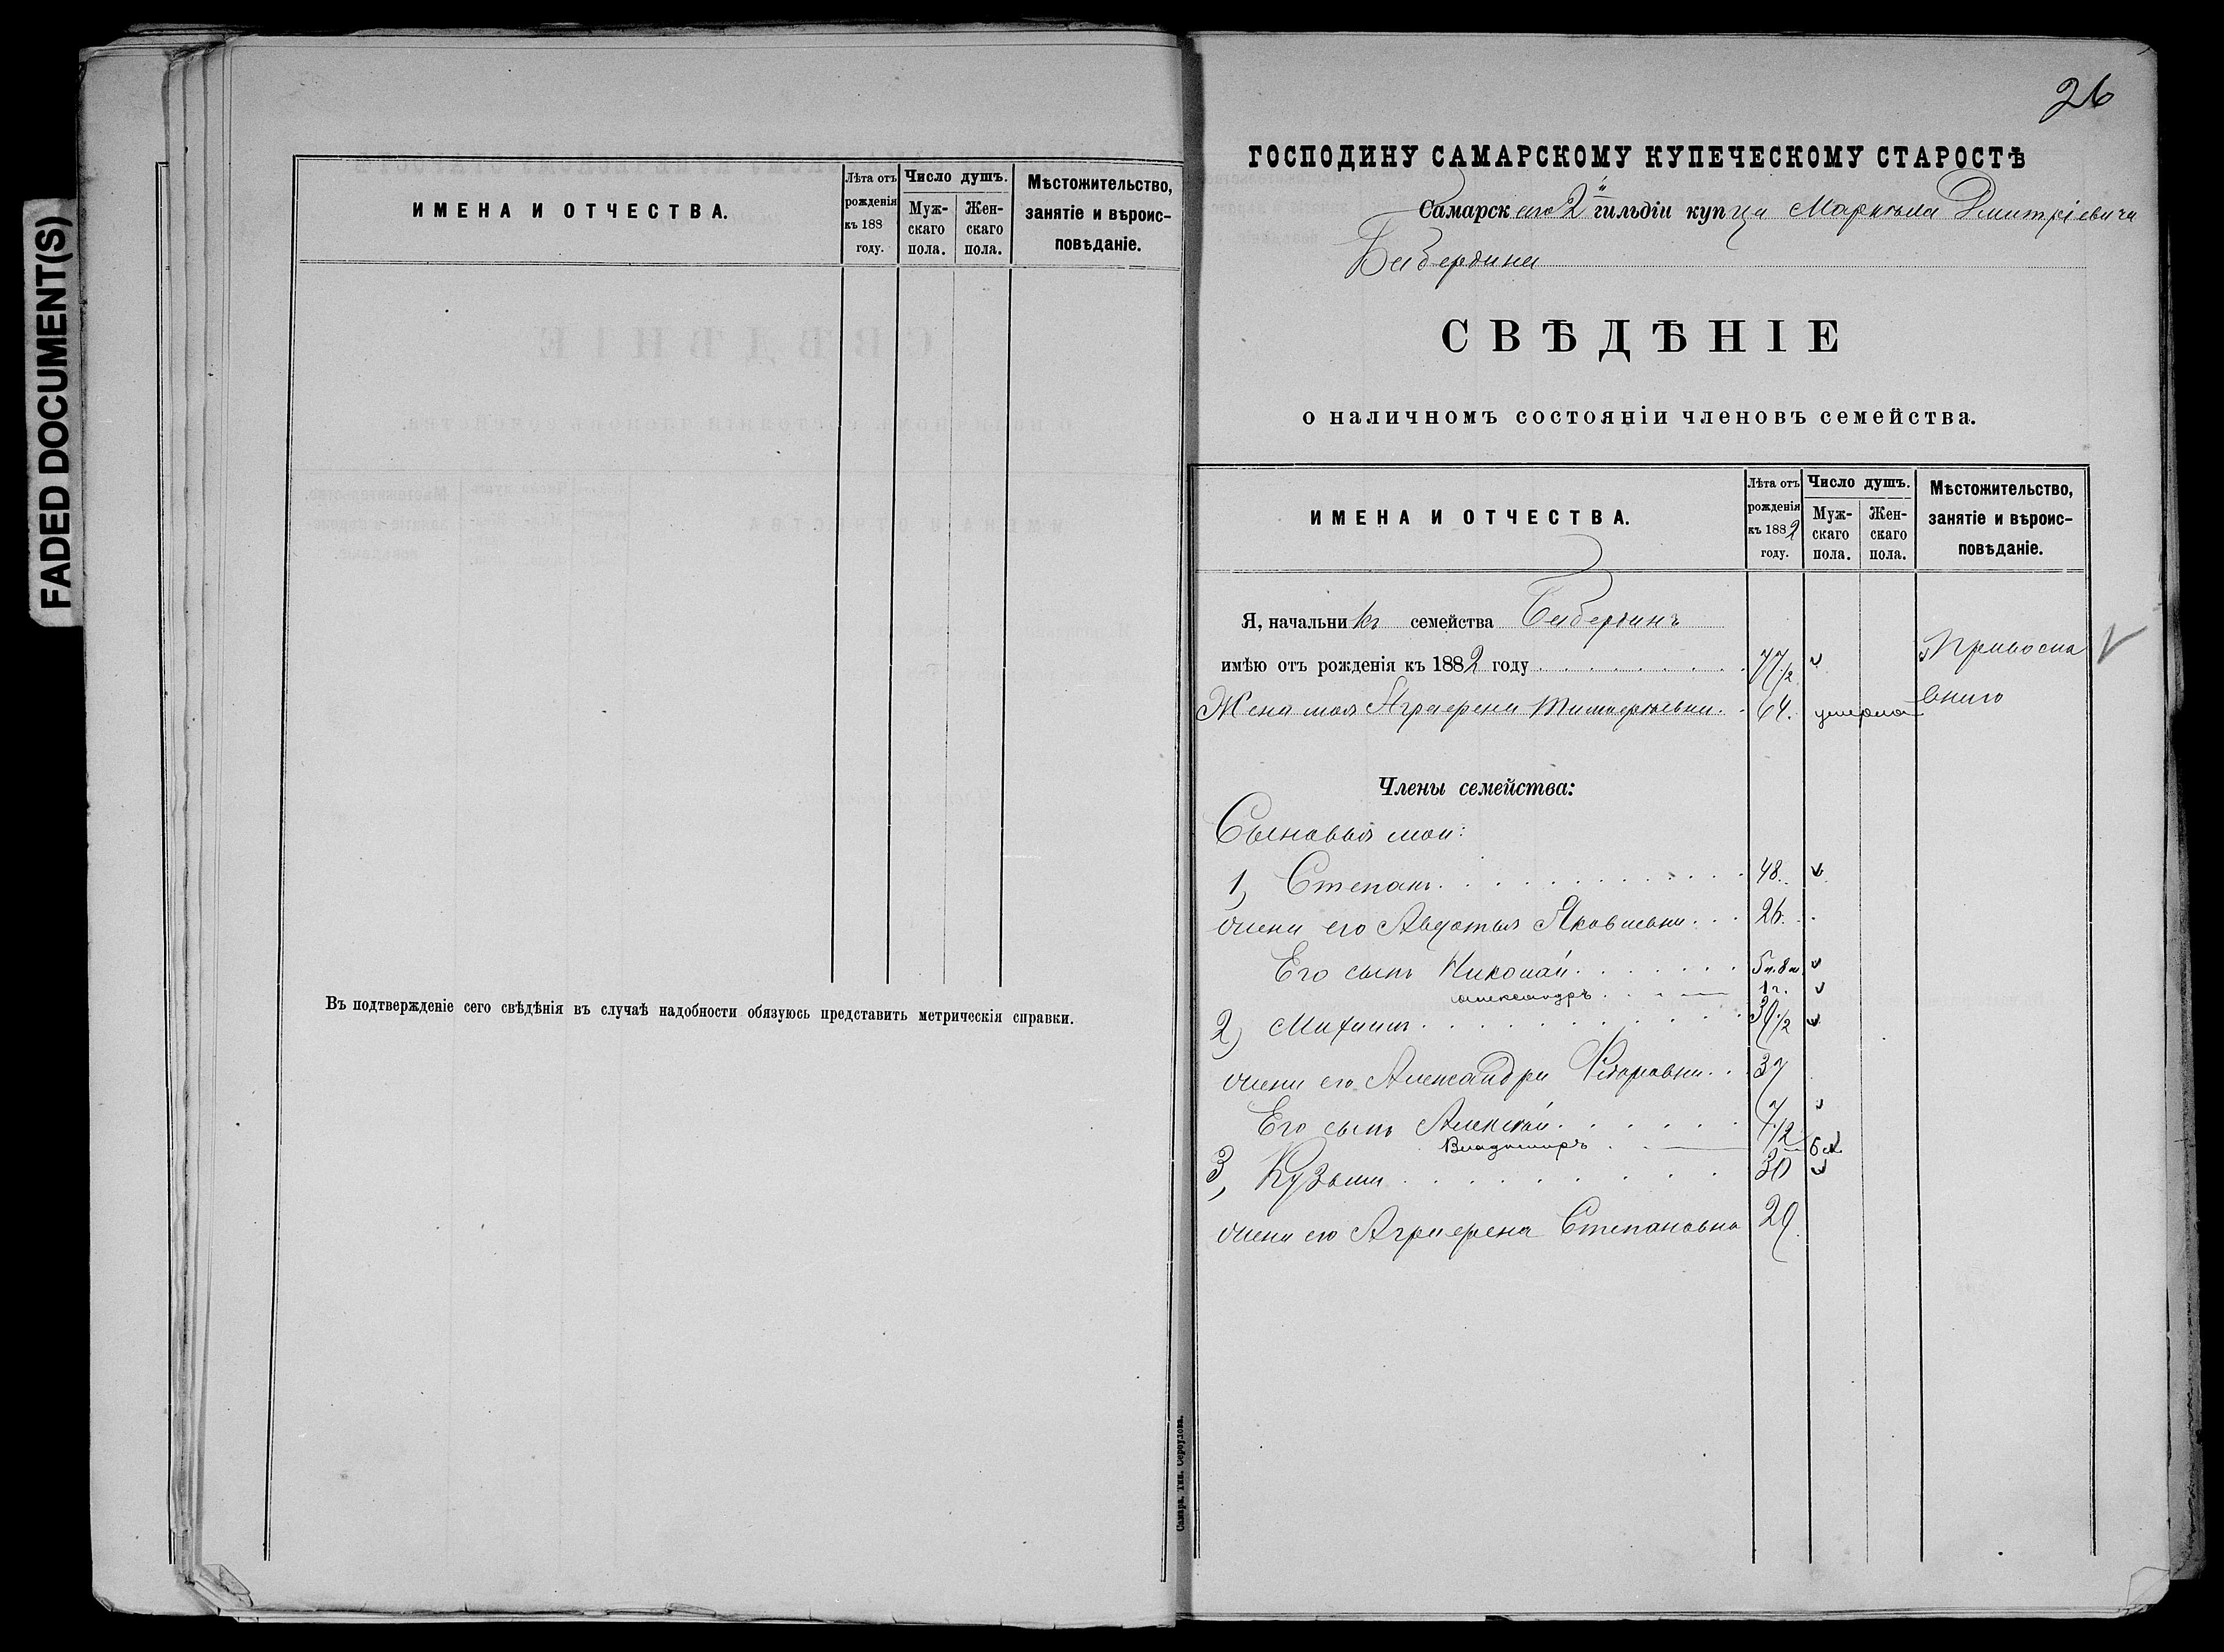 FADED DOCUMENT(S)
ИМЕНА И ОТЧЕСТВА.
Лѣта отъ рожденія къ 188 году.
Число душъ.
Мужскаго пола.
Женскаго пола.
Мѣстожительство, занятіе и вѣроисповѣданіе.
Въ подтвержденіе сего свѣдѣнія въ случаѣ надобности обязуюсь представить метрическія справки.
26
ГОСПОДИНУ САМАРСКОМУ КУПЕЧЕСКОМУ СТАРОСТѢ
Самарскаго 2й гильдіи купца Маркела Дмитріевича
Бебердина
СВѢДѢНІЕ
о наличномъ состояніи членовъ семейства.
ИМЕНА И ОТЧЕСТВА.
Лѣта отъ рожденія къ 1882 году.
Число душъ.
Мужскаго пола.
Женскаго пола.
Мѣстожительство, занятіе и вѣроисповѣданіе.
Я, начальникъ семейства Бебердинъ
имѣю отъ рожденія къ 1882 году 77 1/2 Православ
Жена моя Аграфена Тимофеевна 64. умерла наго
Члены семейства:
Сыновья мои:
1, Степанъ 48.
жена его Авдотья Яковлевна 26.
Его сынъ Николай 5 л. 8 м.
Александръ 1 г.
2) Михаилъ 39 1/2
жена его Александра Федоровна 37
Его сынъ Алексѣй 7 1/2
Владиміръ 6 м.
3, Кузьма 30
жена его Аграфена Степановна 29.
Самара, Тип.